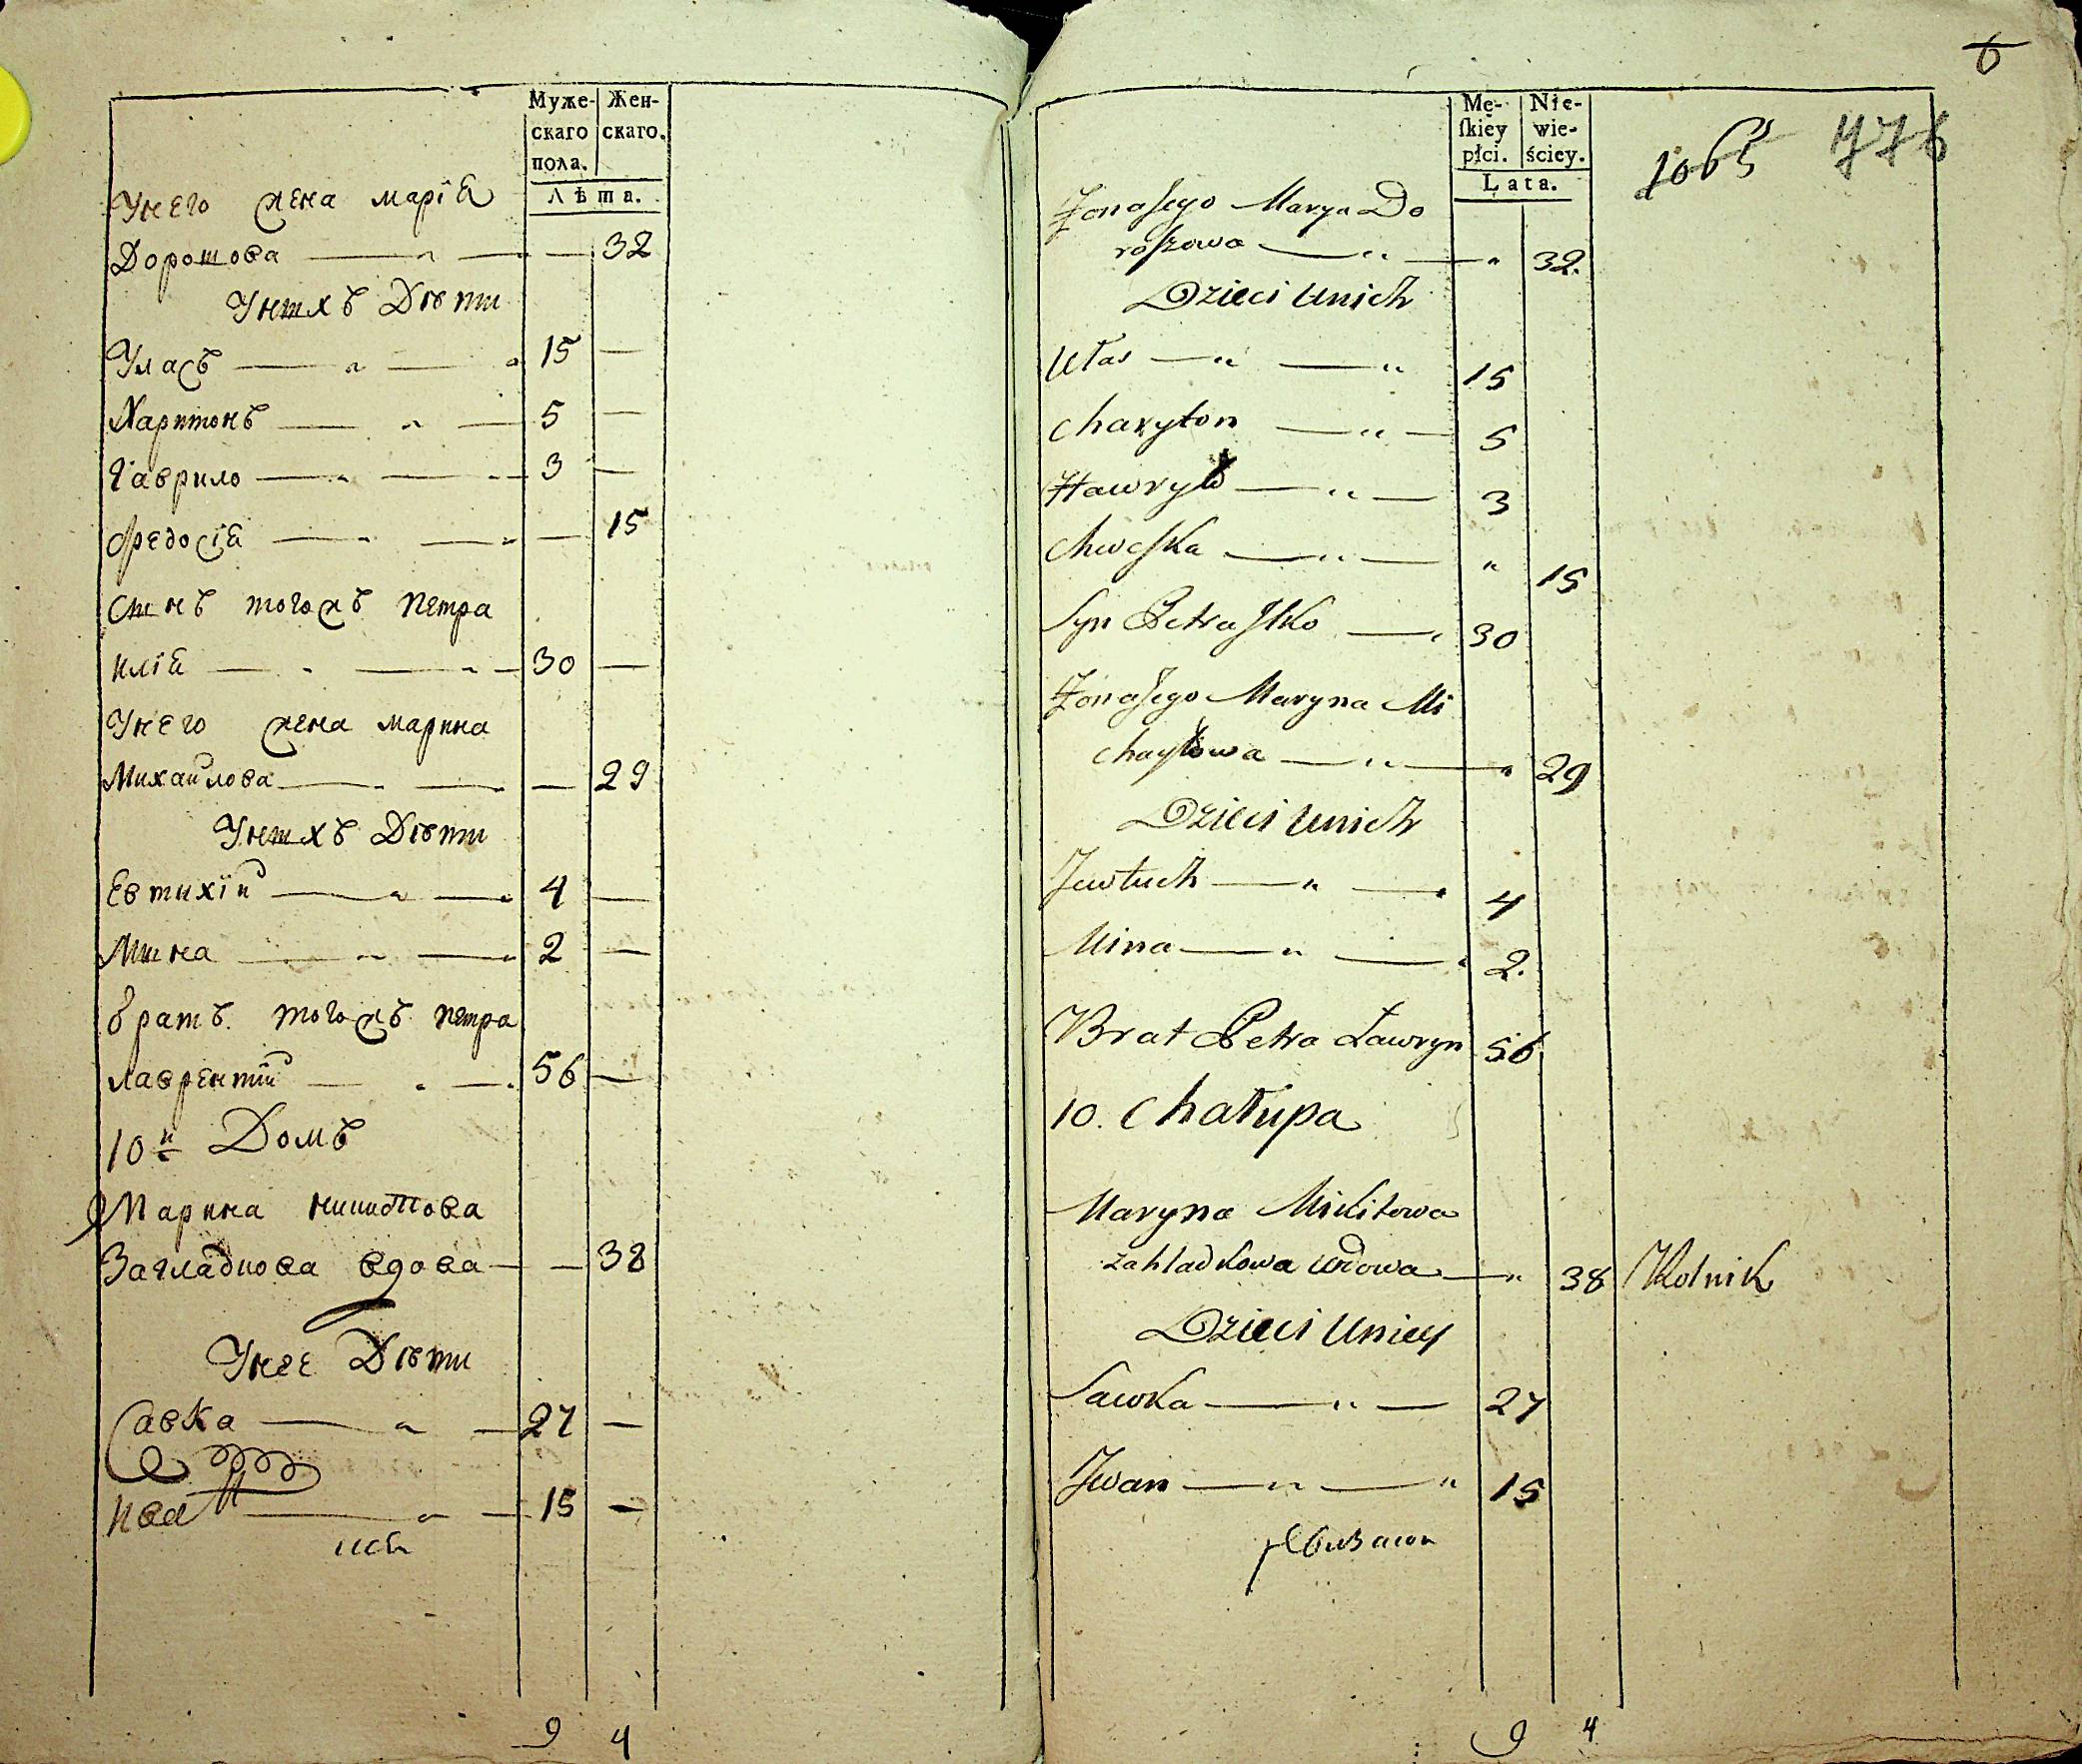 Муже-
скаго
пола.
Жен-
скаго.
Лѣта.
Унего жена марїя
Дорошова — " — — 32
Унихъ Дѣти
Уласъ — " — " 15 —
Харитонъ — " — 5 —
Гаврило — " — 3 —
Федосїя — " — " — 15
Сынъ тогожъ петра
илїя — " — " — 30 —
Унего жена марина
Михайлова — " — " — 29
Унихъ Дѣти
Евтихїй — " — " 4 —
Мина — " — " 2 —
братъ тогожъ петра
лаврентїй — " — 56 —
10й Домъ
Марина никитова
Загладкова вдова — — 38
Унее Дѣти
Савка — " — 27 —
иван — " — 15 —
9 4
6
Mę-
ſkiey
płci.
Nie-
wie-
ściey.
Lata.
1065 776
Żona Jego Marya Do
roszowa — " — " 32.
Dzieci Unich
Ułas — " — " 15
Charyton — " — 5
Hawryło — " — 3
Chweska — " — " 15
Syn Petra Jłko — " 30
Żona Jego Maryna Mi
chayłowa — " — " 29
Dzieci Unich
Jewtuch — " — 4
Mina — " — " 2.
Brat Petra Ławryn 56
10. Chałupa
Maryna Mikitowa
Zahladkowa wdowa — " 38 Rolnik
Dzieci Uniey
Sawka — " — 27
Jwan — " — " 15
9 4